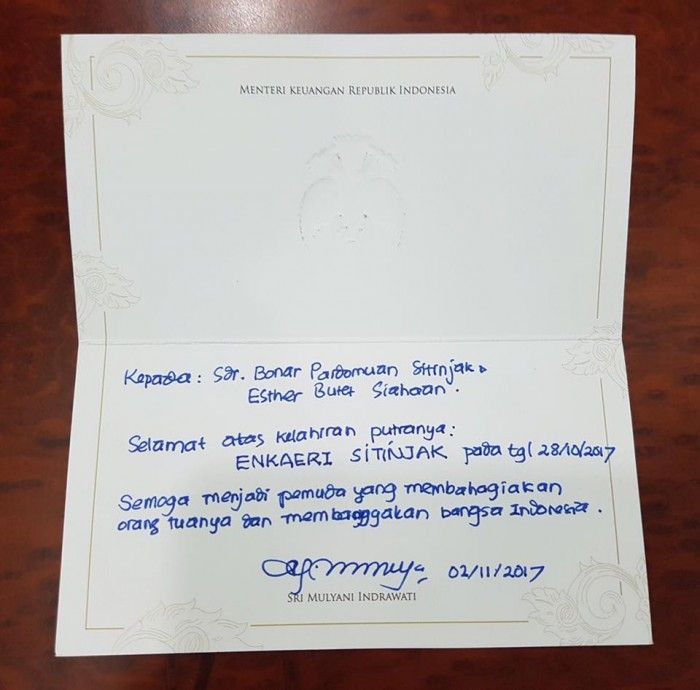 MENTERI KEUANGAN REPUBLIK INDONESIA
Kepada : Sdr. Bonar Pardomuan Sitinjak &
Esther Butet Siahaan .
Selamat atas kelahiran putranya :
ENKAERI SITINJAK pada tgl 28/10/2017
Semoga menjadi pemuda yang membahagiakan
orang tuanya dan membanggakan bangsa Indonesia .
02/11/2017
SRI MULYANI INDRAWATI